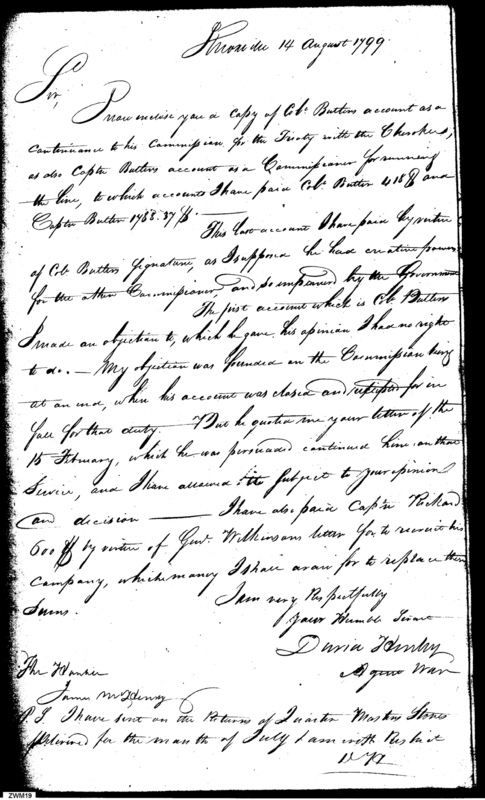 Knoxville 14 August 1799
Sir,
I now enclose you a Copy of Colo. Butlers account as a
continuance to his Commission for the Treaty with the Cherokees,
as also Captn Butlers account as a Commissioner for running
the line, to which accounts I have paid Colo. Butler 418$ and
Captn Butler 1758.37 $. —
This last account I have paid by virtue
of Colo Butlers Signature, as I suppose he had creative powers
for the other Commissioner, and so empowered by the Government
The first account which is Colo Butlers
I made an objection to, which he gave his opinion I had no right
to do. — My objection was founded on the Commission being
at an end, when his account was closed and receipted for in
full for that duty. — But he quoted me your letter of the
15 February, which he was persuaded continued him on that
Service, and I have allowed it subject to your opinion
and decision — I have also paid Captn Rickard
600 $ by virtue of Genl Wilkinsons letter for to recruit his
company, which money I shall draw for to replace these
Sums.
I am very Respectfully
your Humble Servt
David Henley
Agent War
The Honble
James McHenry
P.S. I have sent on the Returns of Quarter Masters Stores
delivered for the month of July I am with Respect
D H
ZWM19